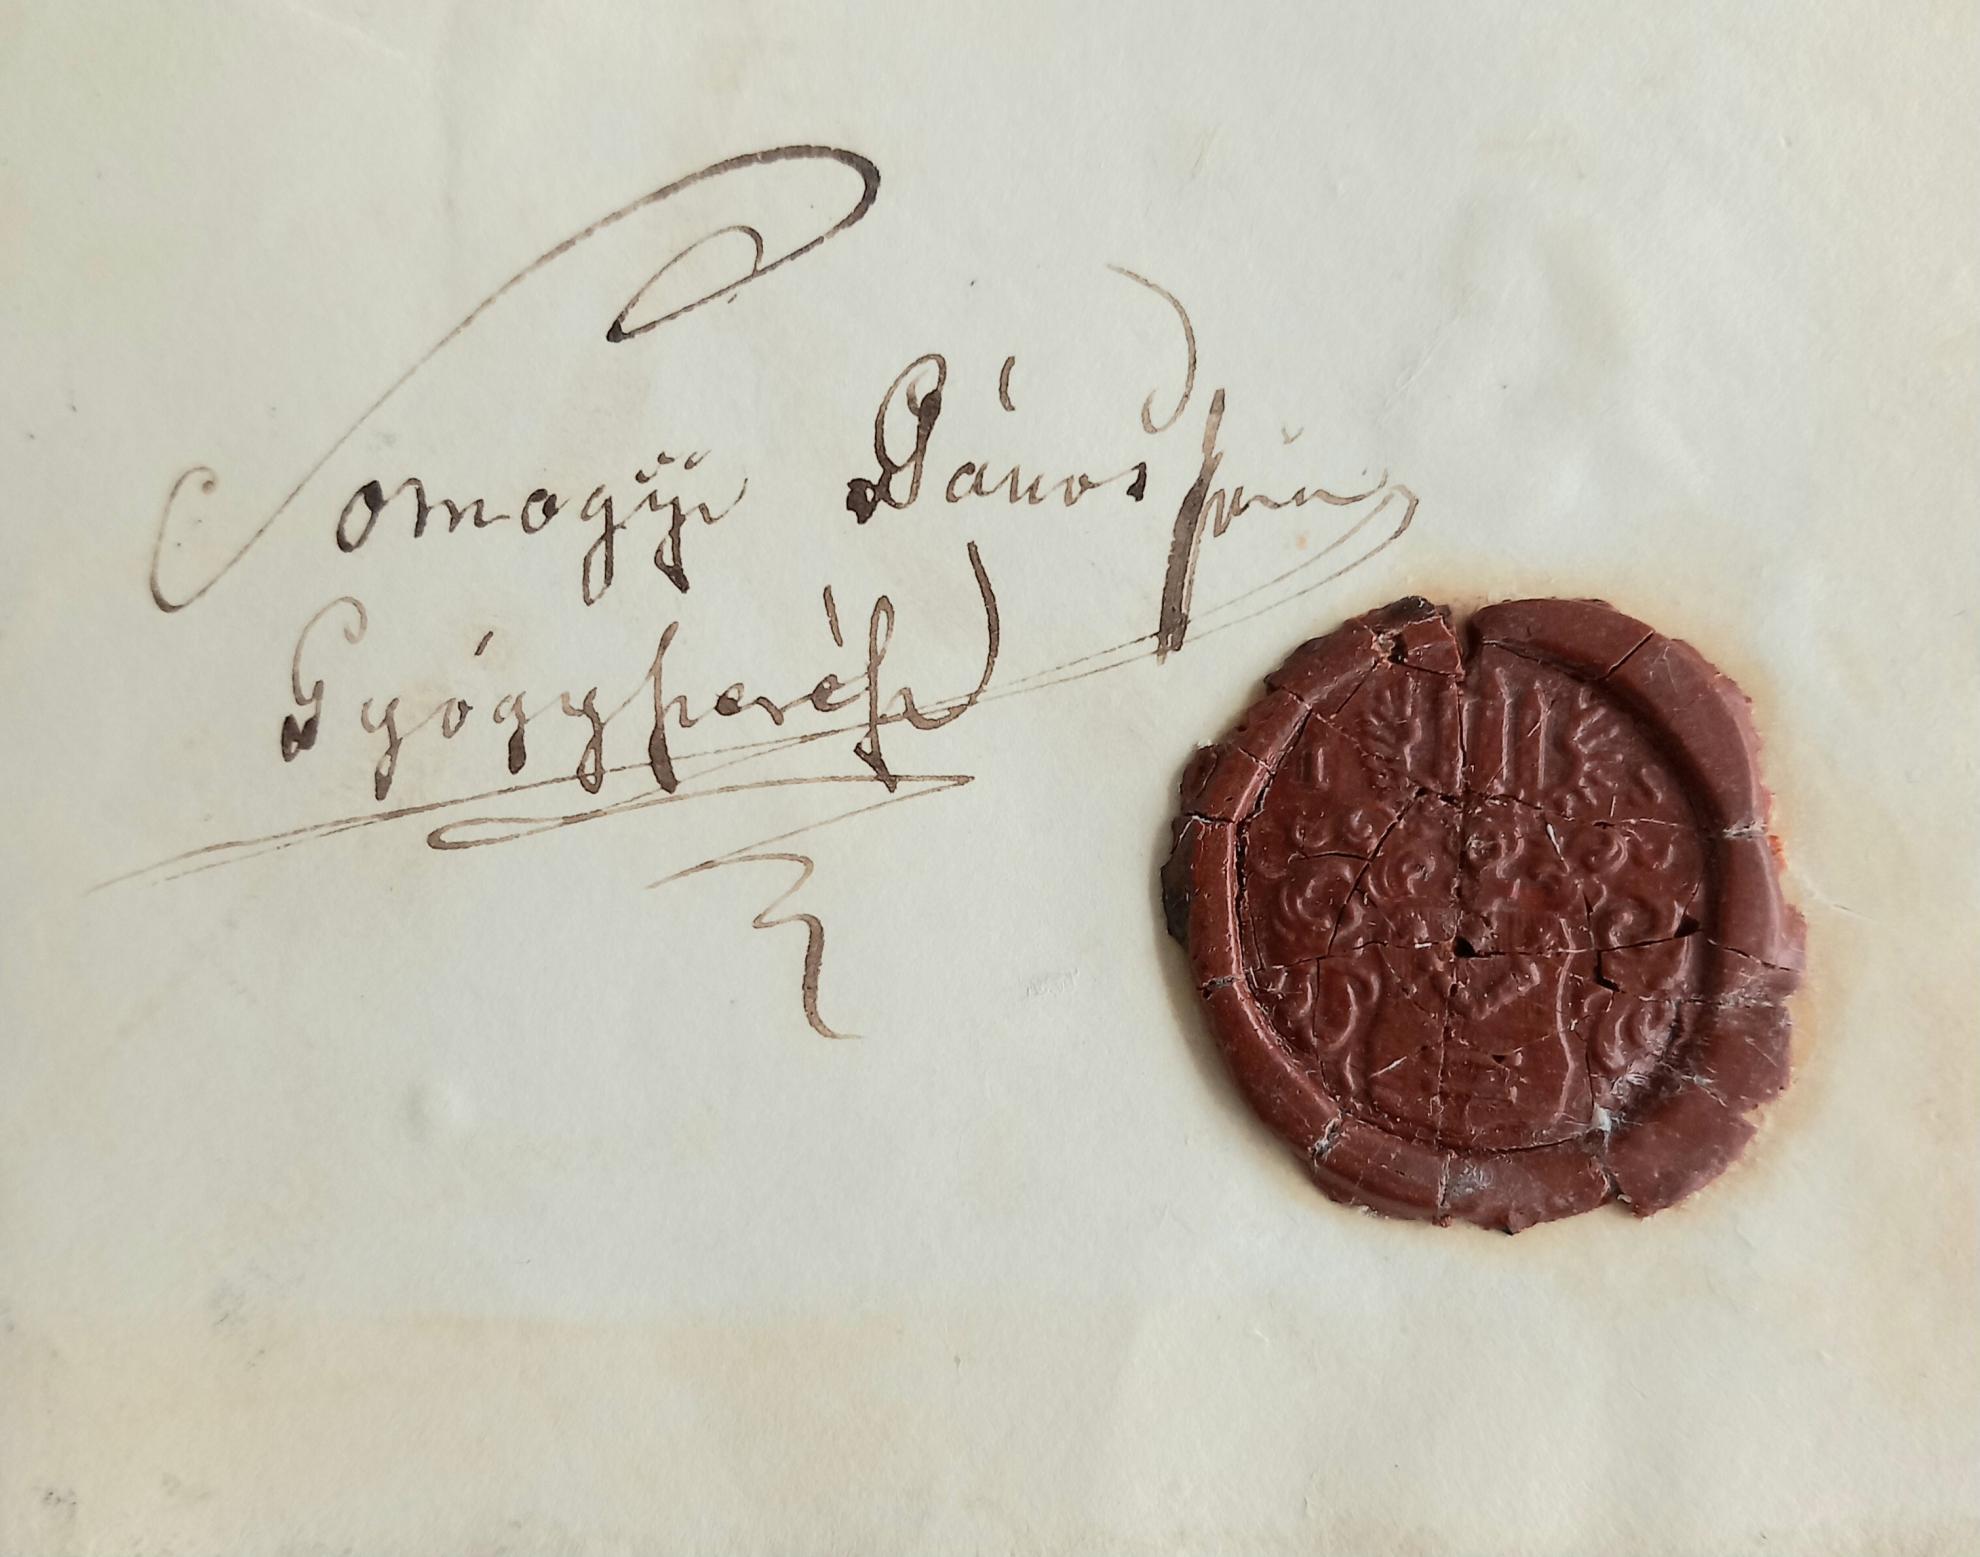 Somogyi János
Gyógyszerész